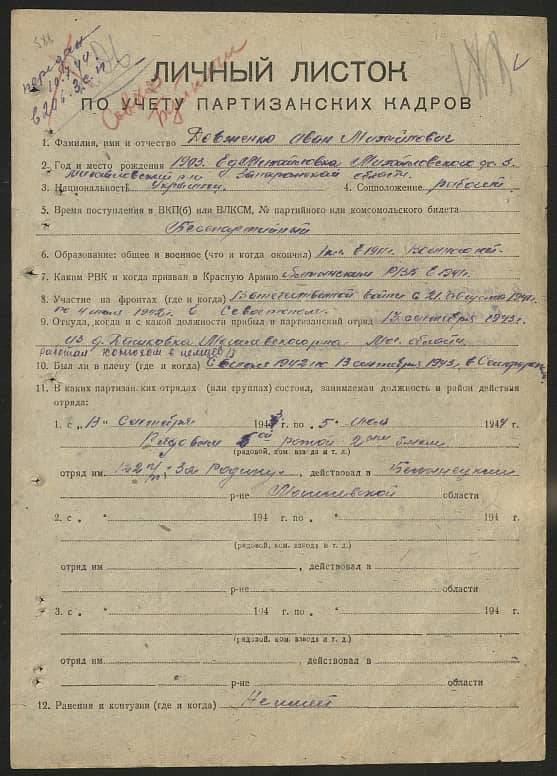 передан
ЛИЧНЫЙ ЛИСТОК
ПО УЧЕТУ ПАРТИЗАНСКИХ КАДРОВ
1. Фамилия, имя и отчество Довженко Иван Михайлович
2. Год и место рождения 1903 д. Михайловка Михайловского
Михайловский р-н Запорожской области
3. Национальность Украинец 4. Соцположение рабочий
5. Время поступления в ВКП(б) или ВЛКСМ, № партийного или комсомольского билета
Беспартийный
6. Образование: общее и военное (что и когда окончил)
7. Каким РВК и когда призван в Красную Армию РВК в 1941г.
8. Участие на фронтах (где и когда) В отечественной войне с 21 августа 1941г.
по 4 июля 1942г. в Севастополе
9. Откуда, когда и с какой должности прибыл в партизанский отряд 13 сентября 1943г.
из д. области
работал конюхом в немцев
10. Был ли в плену (где и когда) С июля 1942 по 13 сентября 1943г.
11. В каких партизанских отрядах (или группах) состоял, занимаемая должность и район действия
отряда:
1. с „13“ Сентября 1943 г. по „5“ июля 1944
Рядовым 5ой ротой 2
(рядовой, ком. взвода и т. д.)
отряд им. За Родину, действовал в
р-не Могилевской области
2. с „ “ 194 г. по „ “ 194 г.
(рядовой, ком. взвода и т. д.)
отряд им , действовал в
р-не области
3. с „ “ 194 г. по „ “ 194 г.
(рядовой, ком. взвода и т. д.)
отряд им. , действовал в
р-не области
12. Ранения и контузии (где и когда) Не имеет